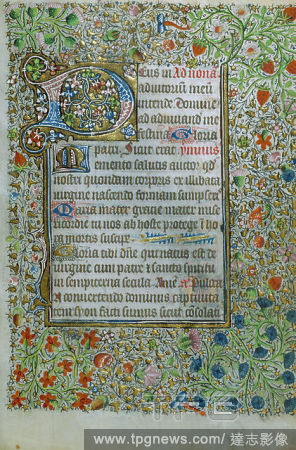 Deus in Ad nona
adiutoriū meū
intende Domine
ad adiuvand me
festina Gloria
patri Sicut erat ymnus
Memento salutis auctor q
nostri quondam corporis ex illibata
virgine nascendo formam sumpser
Maria mater gratie mater mi
ricordie tu nos ab hoste protege i ho
ra mortis suscipe
Gloria tibi dn̄e qui natus est de
virgine cum patre et sancto spiritu
in sempiterna secula Ame
In convertendo dominus captivita
tem syon facti sumus sicut cōsolati
TPG
www.tpgnews.com / 達志影像